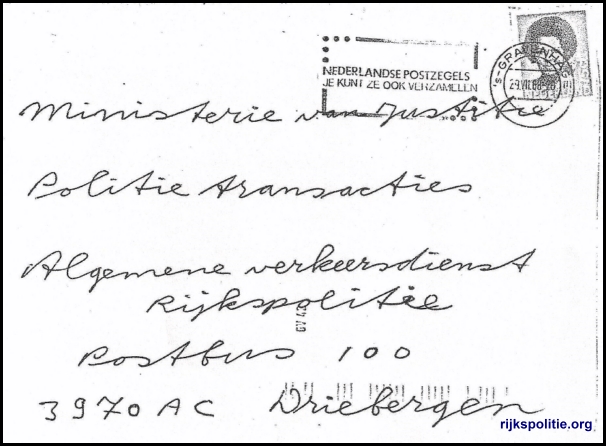 NEDERLANDSE POSTZEGELS
JE KUNT ZE OOK VERZAMELEN
's-GRAVENHAG
Ministerie van Justitie
Politie transacties
Algemene verkeersdienst
Rijkspolitie
GV 42
Postbus 100
3970 AC Driebergen
rijkspolitie.org